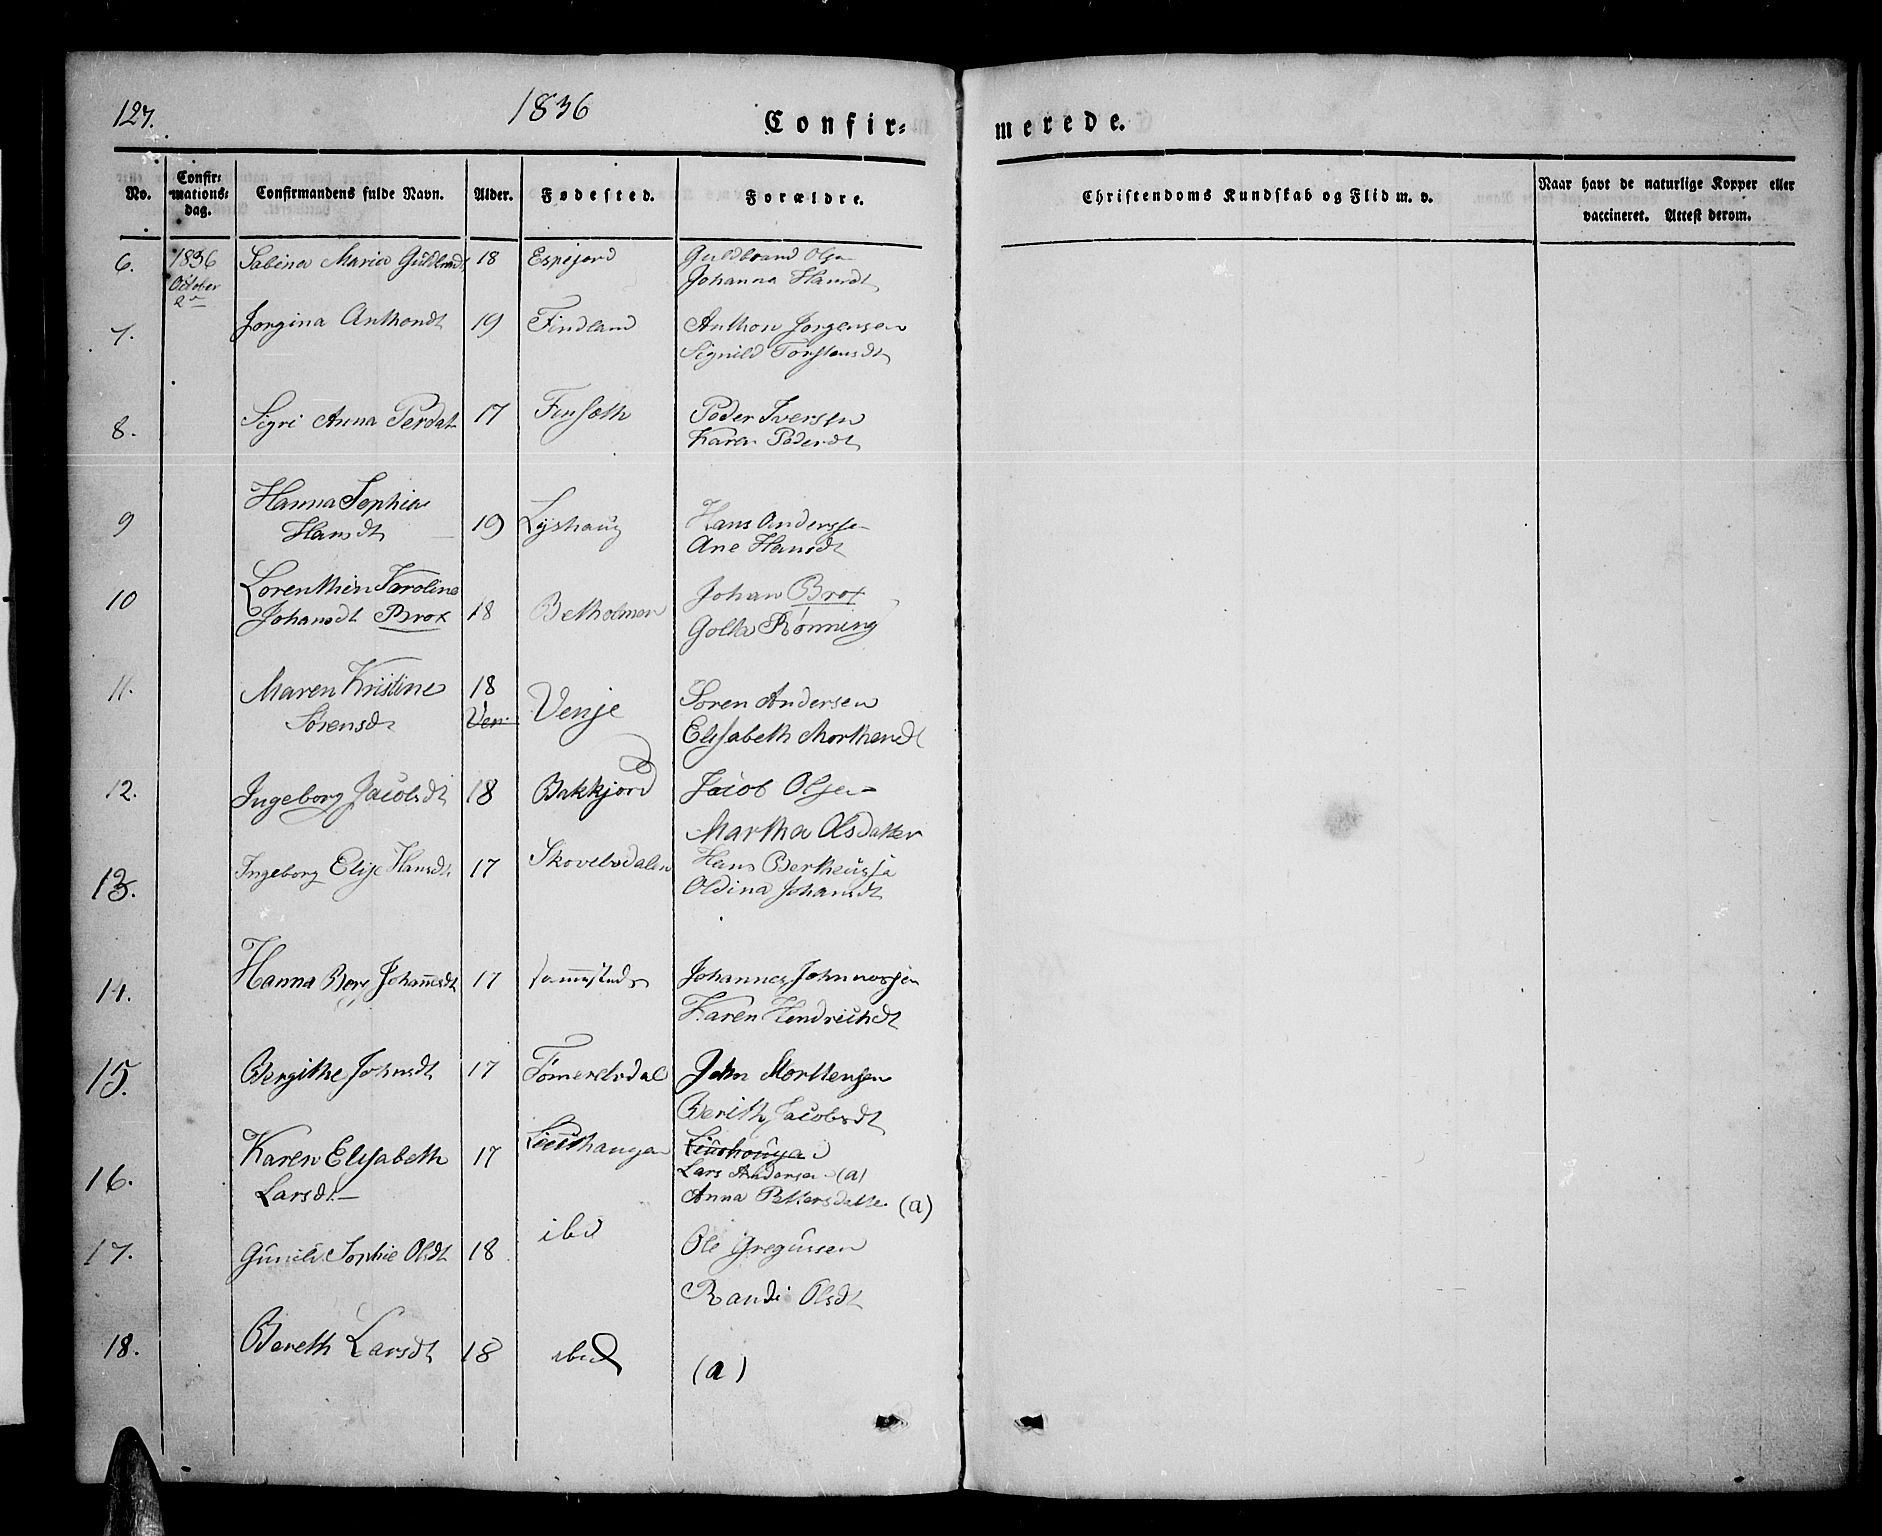 127.
1836
Confir-
merede.
No.
Confir-
mations-
dag.
Confirmandens fulde Navn.
Alder.
Fødested.
Forældre.
Christendoms Kundskab og Flid m. v.
Naar havt de naturlige Kopper eller
vaccineret. Attest derom.
6. 1836 Sabina Maria Guldbrdt 18 Espejord Guldbrand Olsen
October Johanna Hansdt
2
7. Jorgina Anthondt 19 Findland Anthon Jorgensen
Signild Torstensdt
8. Sigri Anna Perdat 17 Finsæth Peder Iversen
Karen Pederdt
Hanna Sophia
9 Hansdt 19 Lyshaug Hans Andersen
Ane Hansdt
Lorenthin Karoline Johan Brox
10 Johansdt Brox 18 Betholmen Golla Rønning
11. Maren Kristine 18 Venje Søren Andersen
Sørensdt Ven Elisabeth Morthendt
12. Ingeborg Jacobsdt 18 Bakkjord Jacob Olsen
Martha Olsdatter
13. Ingeborg Elise Hansdt 17 Skovelvdalen Hans Bertheusen
Oldina Johansdt
14. Hanna Berg Johannesdt 17 sammesteds Johannes
Karen Hendrichdt
15. Bergithe Johnsdt 17 Tømerelvdal John Mortensen
Berith Jacobsdt
16. Karen Elisabeth 17
Larsdt Lars Andersen (a)
Anna Pettersdatter (a)
17. Gunild Sophie Olsdt 18 ibd Ole Gregusen
Randi Olsdt
18. Bereth Larsdt 18 ibd (a)